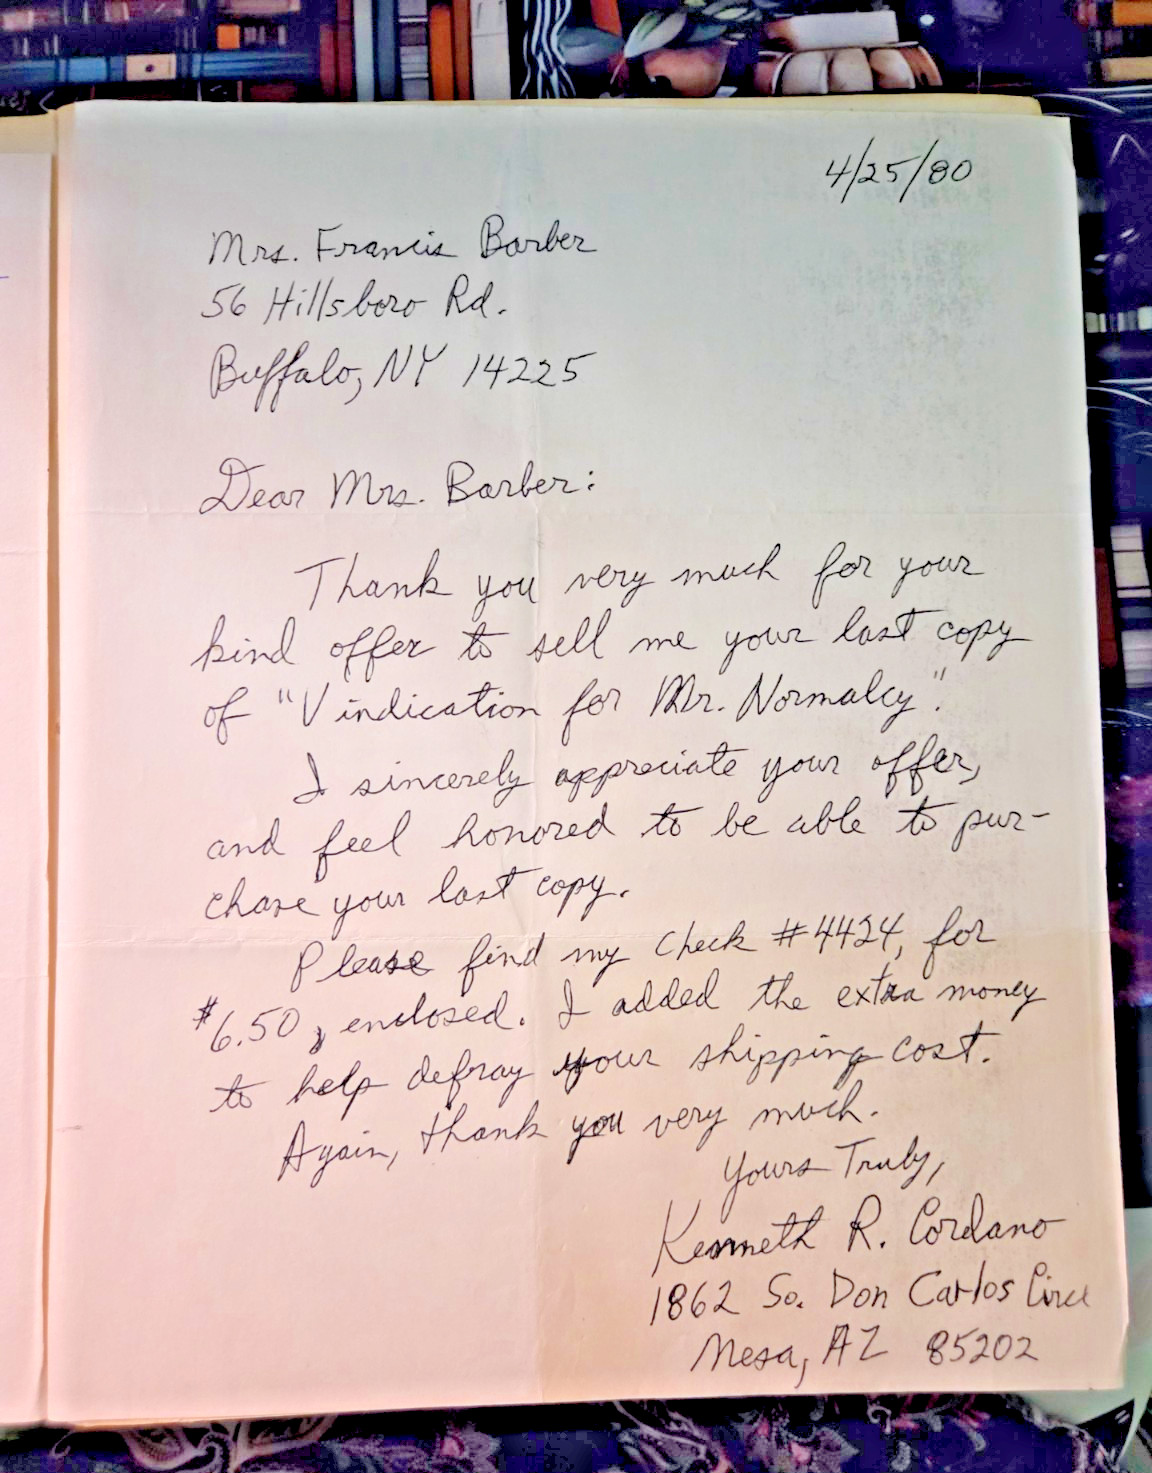 4/25/80
Mrs. Francis Barber
56 Hillsboro Rd.
Buffalo, NY 14225
Dear Mrs. Barber:
Thank you very much for your
kind offer to sell me your last copy
of "Vindication for Mr. Normalcy".
I sincerely appreciate your offer,
and feel honored to be able to pur-
chase your last copy.
Please find my check #4424, for
$6.50, enclosed. I added the extra money
to help defray your shipping cost.
Again, thank you very much.
Yours Truly,
Kenneth R. Cordano
1862 So. Don Carlos
Mesa, AZ 85202